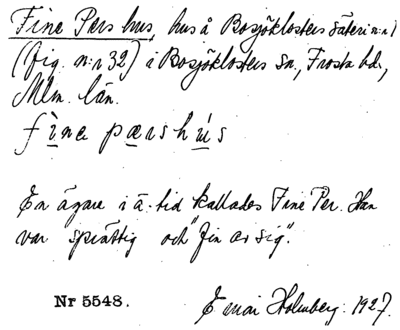 Fine Pers hus, hus å Bosjöklosters säteri n:r 1
(fig. n:r 32) i Bosjöklosters sn, Frosta hd.,
Mlm. län.
fìna pæshús
En ägare i ä. tid kallades Fine Per. Han
var sprättig och "fin av sig".
Nr 5548.
Emai Holmberg. 1927.